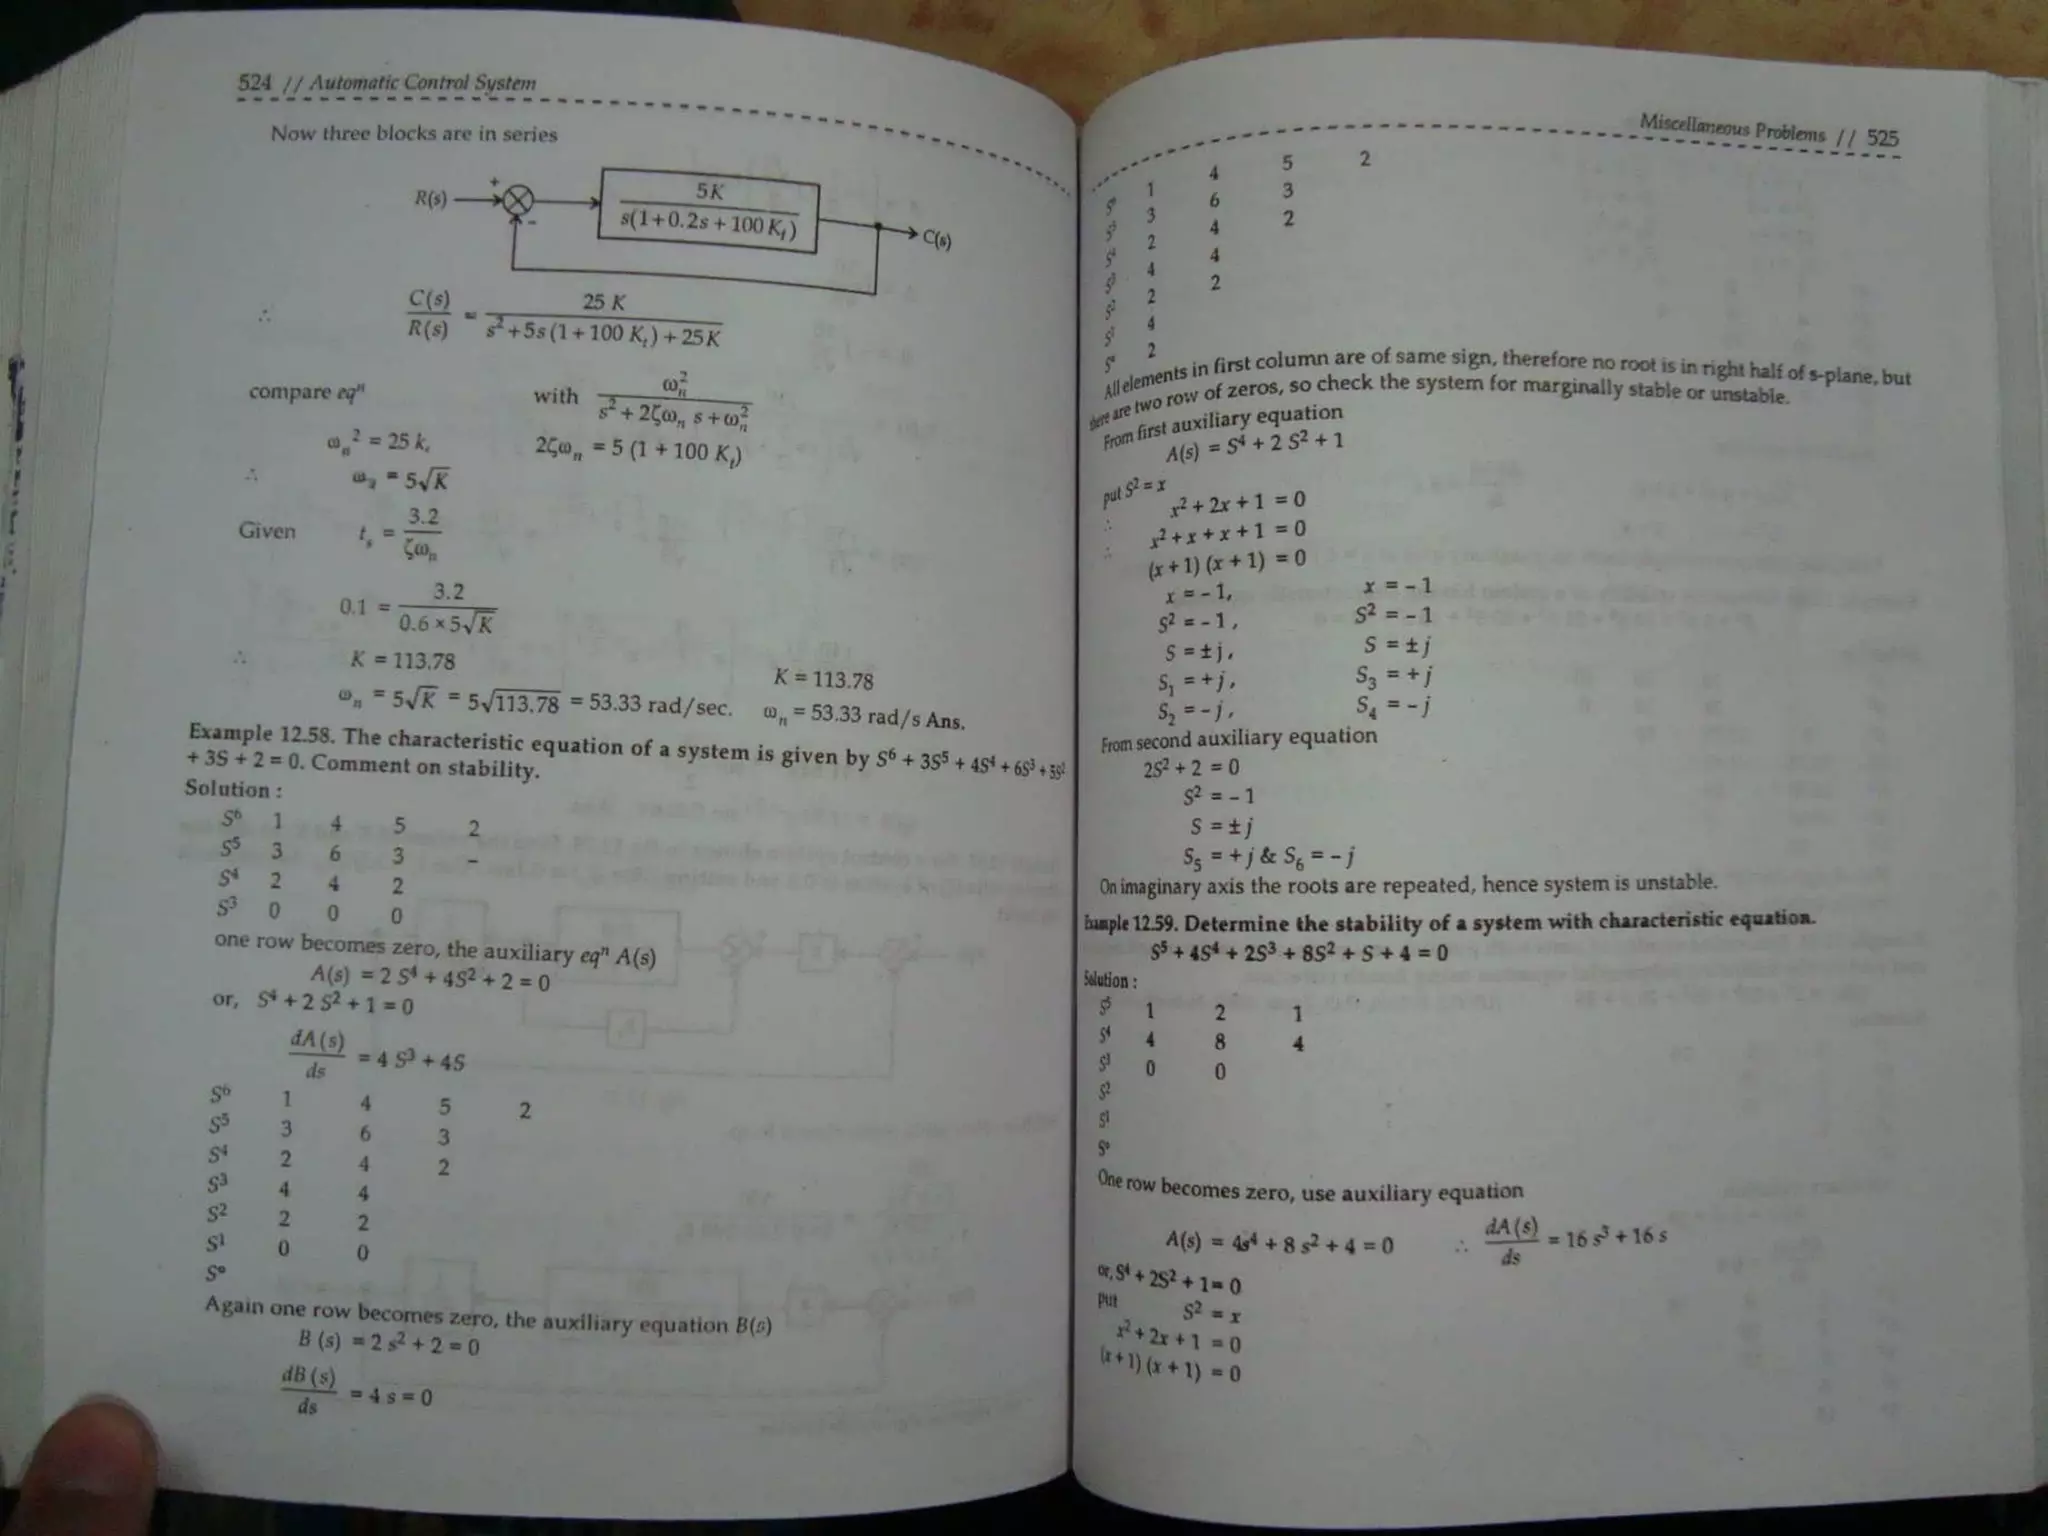 524 // Automatic Control System
Now three blocks are in series
R(s) + - 5K / s(1+0.2s + 100 Kt) C(s)
∴ C(s)/R(s) = 25 K / s² + 5s (1 + 100 Kt) + 25K
compare eqⁿ with ωn² / s² + 2ζωn s + ωn²
ωn² = 25 k, 2ζωn = 5 (1 + 100 Kt)
∴ ωn = 5√K
Given ts = 3.2 / ζωn
0.1 = 3.2 / 0.6 × 5√K
∴ K = 113.78 K = 113.78
ωn = 5√K = 5√113.78 = 53.33 rad/sec. ωn = 53.33 rad/s Ans.
Example 12.58. The characteristic equation of a system is given by S⁶ + 3S⁵ + 4S⁴ + 6S³ + 5S²
+ 3S + 2 = 0. Comment on stability.
Solution :
S⁶ 1 4 5 2
S⁵ 3 6 3 –
S⁴ 2 4 2
S³ 0 0 0
one row becomes zero, the auxiliary eqⁿ A(s)
A(s) = 2 S⁴ + 4S² + 2 = 0
or, S⁴ + 2 S² + 1 = 0
dA(s)/ds = 4 S³ + 4S
S⁶ 1 4 5 2
S⁵ 3 6 3
S⁴ 2 4 2
S³ 4 4
S² 2 2
S¹ 0 0
S°
Again one row becomes zero, the auxiliary equation B(s)
B (s) = 2 s² + 2 = 0
dB(s)/ds = 4 s = 0
Miscellaneous Problems // 525
1 4 5 2
3 6 3
2 4 2
4 4
2 2
4
S° 2
All elements in first column are of same sign, therefore no root is in right half of s-plane, but
there are two row of zeros, so check the system for marginally stable or unstable.
From first auxiliary equation
A(s) = S⁴ + 2 S² + 1
put S² = x
∴ x² + 2x + 1 = 0
∴ x² + x + x + 1 = 0
(x + 1) (x + 1) = 0
x = – 1, x = – 1
S² = – 1, S² = – 1
S = ± j, S = ± j
S₁ = + j, S₃ = + j
S₂ = – j, S₄ = – j
From second auxiliary equation
2S² + 2 = 0
S² = – 1
S = ± j
S₅ = + j & S₆ = – j
On imaginary axis the roots are repeated, hence system is unstable.
Example 12.59. Determine the stability of a system with characteristic equation.
S⁵ + 4S⁴ + 2S³ + 8S² + S + 4 = 0
Solution :
S⁵ 1 2 1
S⁴ 4 8 4
S³ 0 0
S²
S¹
S°
One row becomes zero, use auxiliary equation
A(s) = 4s⁴ + 8 s² + 4 = 0 ∴ dA(s)/ds = 16 s³ + 16 s
or, S⁴ + 2S² + 1 = 0
put S² = x
x² + 2x + 1 = 0
(x + 1) (x + 1) = 0